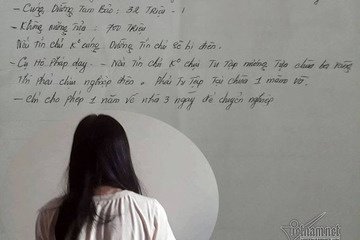 - Cúng Dường Tam Bảo: 32 Triệu - 1
- Không nương Tựa : 700 Triệu
Nếu tín chủ K° cúng Dường Tín chủ sẽ bị điên.
- Cụ Hồ Pháp dạy. - Nếu Tín chủ K° chịu Tu Tập nương Tựa
Tín Phải chịu nghiệp điên. Phải Tu Tập Tại chùa 1 năm
- Chỉ cho phép 1 năm về nhà 3 ngày để chuyển nghiệp
vietnamnet